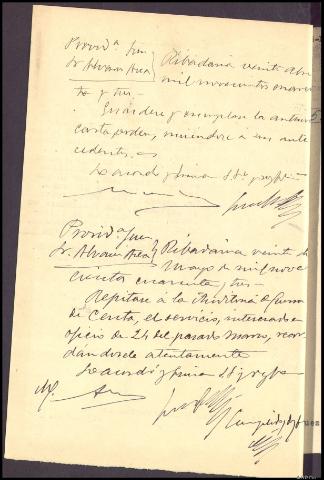 Provid.ª Juez
Sr. Alvarez Area } Ribadavia veinte Abril
mil novecientos cuaren-
ta y tres-
Guárdese y cúmplase la anterior
carta orden, uniéndose a sus ante
cedentes.
Lo acordó y firma S.Sª doy fe
Provid.ª Juez
Sr. Alvarez Area } Ribadavia veinte de
Mayo de mil nove
cientos cuarenta y tres-
Repítase a la Auditoría de Guerra
de Ceuta, el servicio, interesado en
oficio de 24 del pasado Marzo, recor
dandosele atentamente
Lo acordó y firma S.Sª doy fe
M/.
Cumplido, doy fe